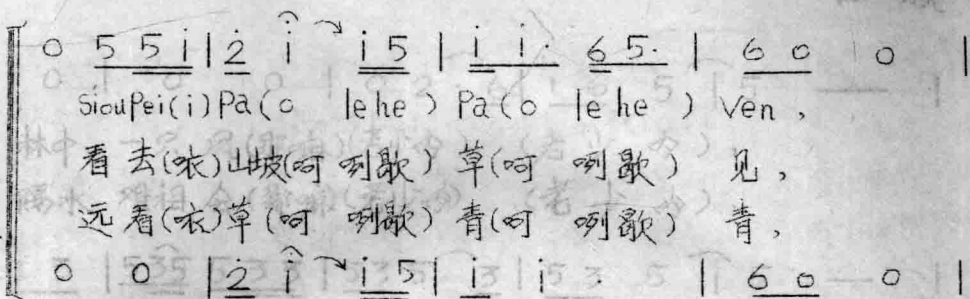 0 5 5 i | 2 i i 5 | i i· 6 5· | 6 0 0 |
siou pei(i) pa(o lehe) pa(o lehe) ven,
看去(咴)山坡(呵 咧歇) 草(呵 咧歇) 见,
远看(咴)草(呵 咧歇) 青(呵 咧歇) 青,
0 0 | 2 i i 5 | i i· | 6 0 0 |